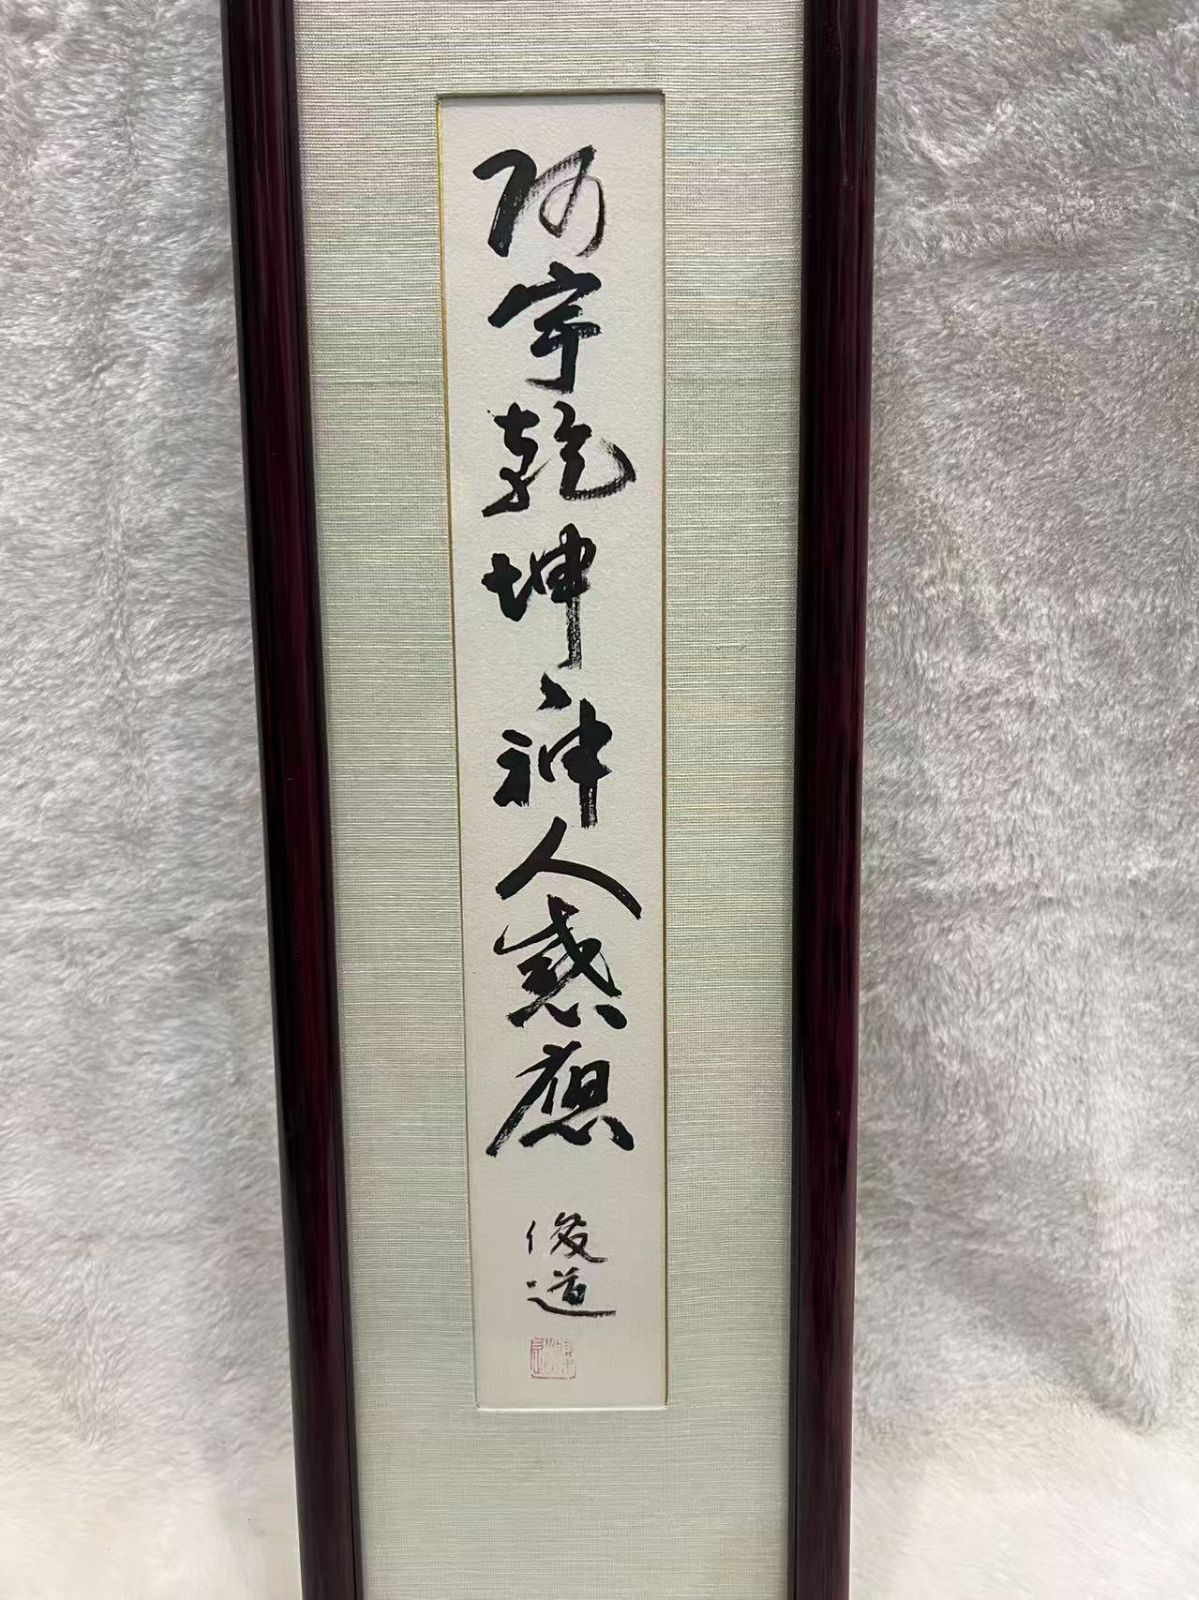 阿宇乾坤神人感應
俊道